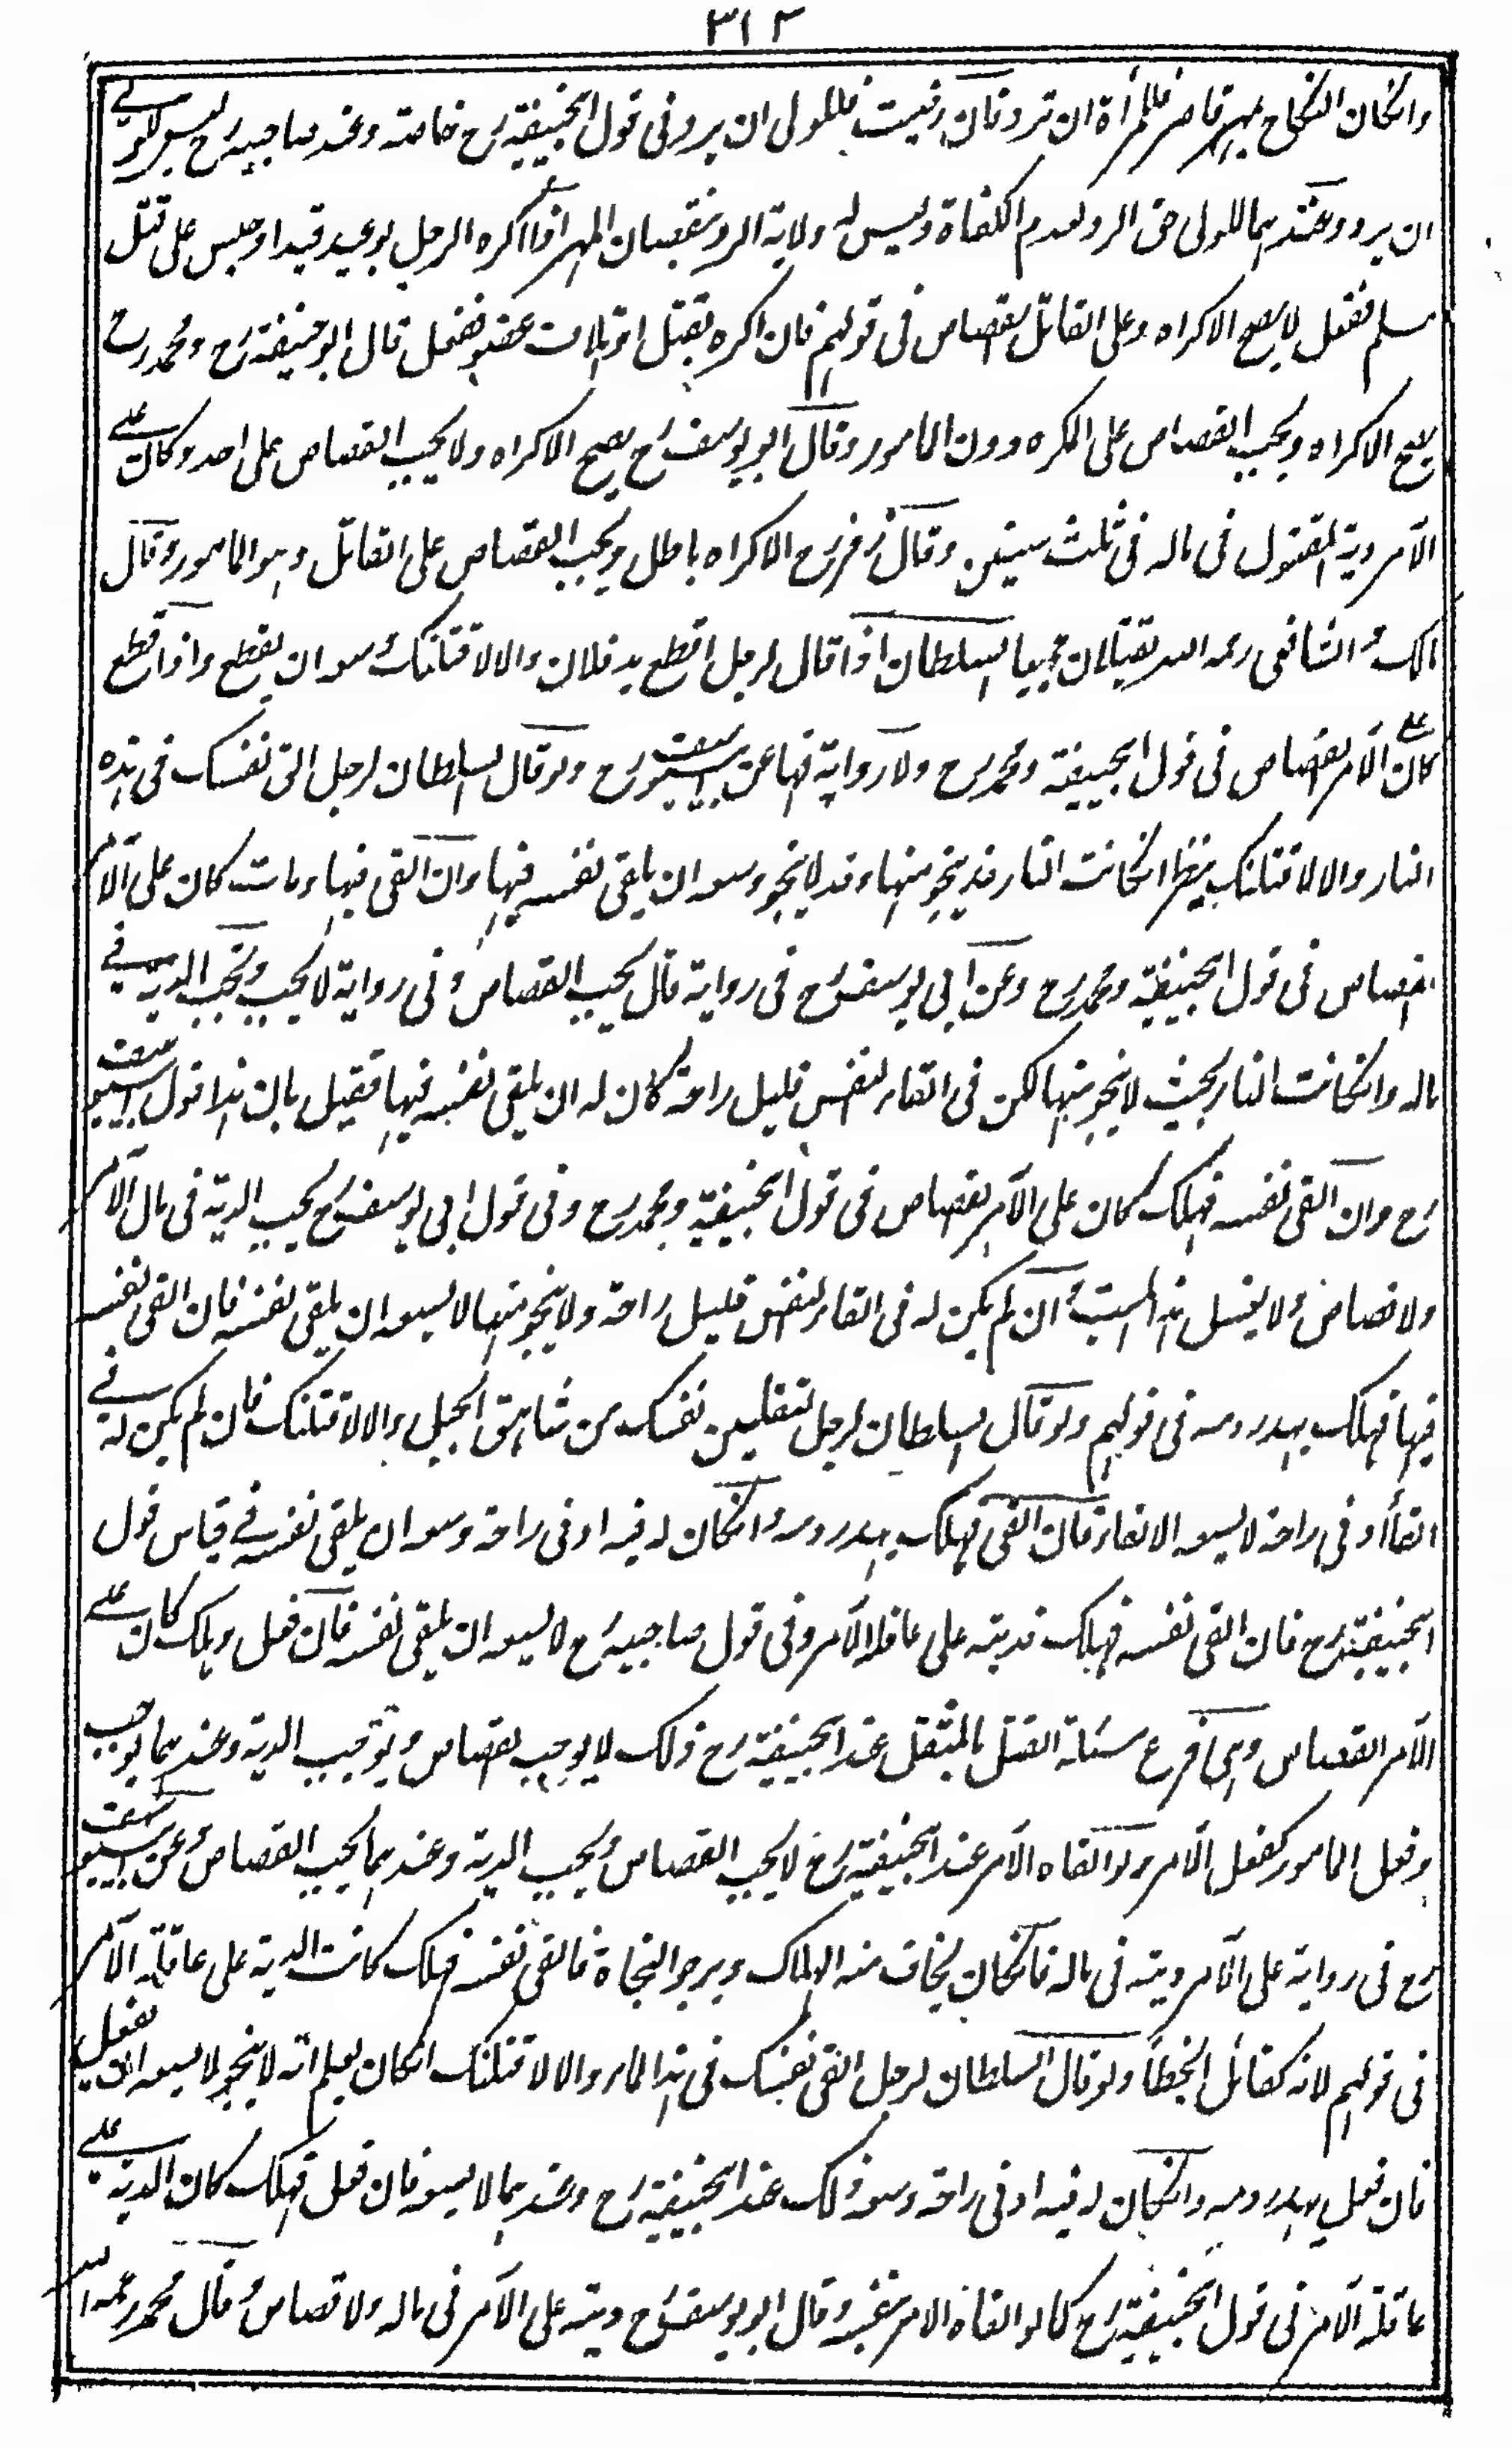 ٣١٢
وانكان النكاح بمهر قاصر فللمرأة ان ترد فان رضيت فللولى ان يرد فى قول ابيحنيفة رح خاصة وعند صاحبيه رح ليس للولے
ان يرد وعندهما للولى حق الرد لعدم الكفاة وليس له ولاية الرد بنقصان المهر اذا اكره الرجل بوعيد قيد او حبس على قتل
مسلم ففعل لا يصح الاكراه وعلى القاتل القصاص فى قولهم فان اكره بقتل او تلاف عضو ففعل قال ابو حنيفة رح ومحمد رح
يصح الاكراه ويجب القصاص على المكره دون المامور وقال ابو يوسف رح يصح الاكراه ولا يجب القصاص على احد وكان علے
الآمر دية المقتول فى ماله فى ثلث سنين وقال زفر رح الاكراه باطل ويجب القصاص على القاتل وهو المامور وقال
مالك والشافعى رحمه الله يقتلان جميعا السلطان اذا قال لرجل اقطع يد فلان والا لاقتلنك وسعه ان يقطع واذا قطع
كان علے الآمر القصاص فى قول ابيحنيفة ومحمد رح ولا رواية فيها عن ابييوسف رح ولو قال السلطان لرجل الق نفسك فى هذه
النار والا لاقتلنك ينظر انكانت النار قد ينجو منها وقد لا ينجو وسعه ان يلقى نفسه فيها وان القى فيها ومات كان على الآمر
القصاص فى قول ابيحنيفة ومحمد رح وعن ابى يوسف رح فى رواية قال يجب القصاص وفى رواية لا يجب وتجب الدية فے
ماله وانكانت النار بحيث لا ينجو منها لكن فى القاء النفس قليل راحة كان له ان يلقى نفسه فيها فقيل بان هذا قول ابييوسف
رح وان القى نفسه فهلك كان على الآمر القصاص فى قول ابيحنيفة ومحمد رح وفى قول ابى يوسف رح يجب الدية فى مال الآمر
ولا قصاص ولا يغسل هذا الميت وان لم يكن له فى القاء النفس قليل راحة ولا ينجو منها لا يسعه ان يلقى نفسه فان القى نفسه
فيها فهلك يهدر دمه فى قولهم ولو قال السلطان لرجل لتقلين نفسك من شاهق الجبل والا لاقتلنك فان لم يكن له فے
القأ ادنى راحة لا يسعه الالقاء فان القى فهلك يهدر دمه وانكان له فيه ادنى راحة وسعه ان يلقى نفسه فے قياس قول
ابيحنيفة رح فان القى نفسه فهلك فديته على عاقلة الآمر وفى قول صاحبيه رح لا يسعه ان يلقى نفسه فان فعل وهلك كان علے
الآمر القصاص وهى فرع مسئلة القتل بالمثقل عند ابيحنيفة رح ذلك لا يوجب القصاص ويوجب الدية وعندهما يوجب
وفعل المامور كفعل الآمر ولو القاه الآمر عند ابيحنيفة رح لا يجب القصاص ويجب الدية وعندهما يجب القصاص وعن ابييوسف
رح فى رواية على الآمر ديته فى ماله فانكان يخاف منه الهلاك ويرجو النجاة فالقى نفسه فهلك كانت الدية على عاقلة الآمر
فى قولهم لانه كقاتل الخطأ ولو قال السلطان لرجل الق نفسك فى هذا الماء والا لاقتلنك انكان يعلم انه لا ينجو لا يسعه ان يفعل
فان فعل يهدر دمه وانكان له فيه ادنى راحة وسعه ذلك عند ابيحنيفة رح وعندهما لا يسعه فان فعل فهلك كان الدية علے
عاقلة الآمر فى قول ابيحنيفة رح كما لو القاه الآمر بنفسه وقال ابو يوسف رح ديته على الآمر فى ماله ولا قصاص وقال محمد رحمه الله